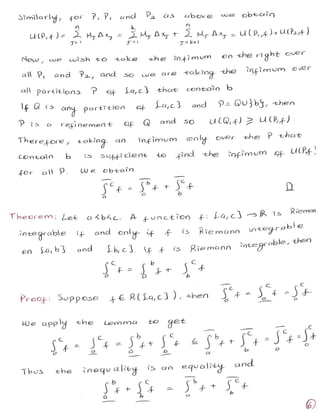 Similarly, for P, P₁ and P₂ as above we obtain
U(P,f) = ∑ⁿⱼ₌₁ Mⱼ Δxⱼ = ∑ᵏⱼ₌₁ Mⱼ Δxⱼ + ∑ⁿⱼ₌ₖ₊₁ Mⱼ Δxⱼ = U(P₁,f) + U(P₂,f)
Now, we wish to take the infimum on the right over
all P₁ and P₂, and so we are taking the infimum over
all partitions P of [a,c] that contain b.
If Q is any partition of [a,c] and P = Q∪{b}, then
P is a refinement of Q and so U(Q,f) ≥ U(P,f)
Therefore, taking an infimum only over the P that
contain b is sufficient to find the infimum of U(P,f)
for all P. We obtain
∫̅ₐᶜ f = ∫̅ₐᵇ f + ∫̅ᵦᶜ f □
Theorem: Let a<b<c. A function f: [a,c] → ℝ is Riemann
integrable if and only if f is Riemann integrable
on [a,b] and [b,c]. If f is Riemann integrable, then
∫ₐᶜ f = ∫ₐᵇ f + ∫ᵦᶜ f
Proof: Suppose f ∈ R([a,c]), then ∫̅ₐᶜ f = ∫̲ₐᶜ f = ∫ₐᶜ f.
We apply the lemma to get
∫ₐᶜ f = ∫̲ₐᶜ f = ∫̲ₐᵇ f + ∫̲ᵦᶜ f ≤ ∫̅ₐᵇ f + ∫̅ᵦᶜ f = ∫̅ₐᶜ f = ∫ₐᶜ f
Thus the inequality is an equality and
∫̲ₐᵇ f + ∫̲ᵦᶜ f = ∫̅ₐᵇ f + ∫̅ᵦᶜ f
6